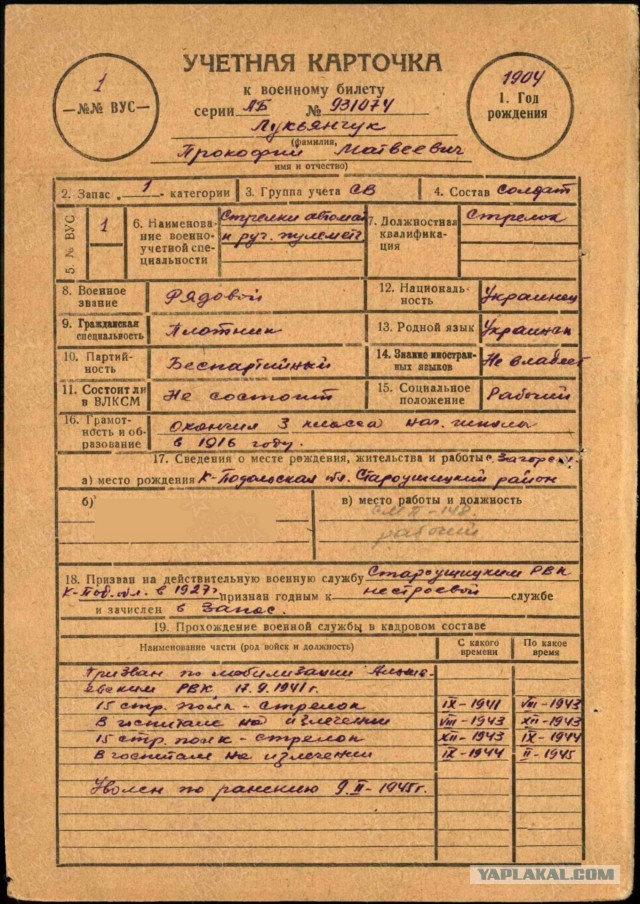 УЧЕТНАЯ КАРТОЧКА
к военному билету
серии ЛБ № 931074
1
—№№ ВУС—
1904
1. Год
рождения
Лукьянчук
(фамилия,
Прокофий Матвеевич
имя и отчество)
2. Запас „ 1 " категории
3. Группа учета СВ
4. Состав солдат
5. № ВУС
1
6. Наименова-
ние военно-
учетной спе-
циальности
Стрелки автомат
и руч. пулемет
7. Должностная
квалифика-
ция
Стрелок
8. Военное
звание
Рядовой
12. Националь-
ность
Украинец
9. Гражданская
специальность
Плотник
13. Родной язык
10. Партий-
ность
Беспартийный
14. Знание иностран-
ных языков
Не владеет
11. Состоит ли
в ВЛКСМ
Не состоит
15. Социальное
положение
Рабочий
16. Грамот-
ность и об-
разование
окончил 3 класса нач. школы
в 1916 году.
17. Сведения о месте рождения, жительства и работы
а) место рождения К-Подольская обл. Староушицкий район
б)
в) место работы и должность
рабочий
18. Призван на действительную военную службу Староушицким РВК
К-Под. обл. в 1927г признан годным к нестроевой службе
и зачислен в запас.
19. Прохождение военной службы в кадровом составе
Наименование части (род войск и должность)
С какого
времени
По какое
время
Призван по мобилизации
РВК 17.9.1941г.
15 стр. полк - стрелок IX-1941 VIII-1943
В госпитале на излечении VIII-1943 XII-1943
15 стр. полк - стрелок XII-1943 IX-1944
В госпитале на излечении IX-1944 II-1945
Уволен по ранению 9.II-1945г.
YAPLAKAL.COM